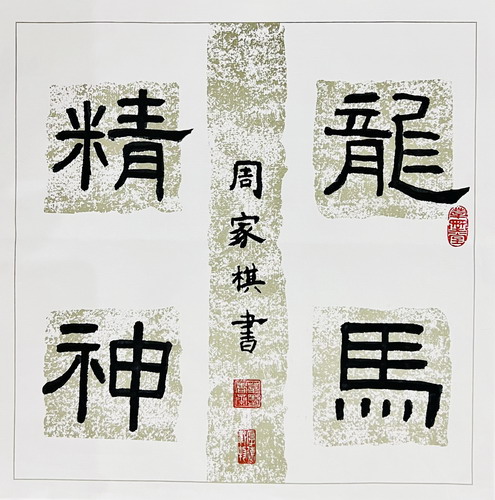 龍馬
精神
周家棋書